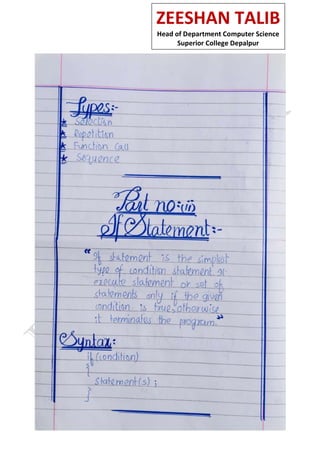 ZEESHAN TALIB
Head of Department Computer Science
Superior College Depalpur
Types:-
★ Selection
★ Repetition
★ Function Call
★ Sequence
Part no:(ii)
If Statement:-
"If statement is the simplest
type of condition statement. It
execute statement or set of
statements only if the given
condition is true, otherwise
it terminates the program."
Syntax:
if (condition)
{
statement(s) ;
}